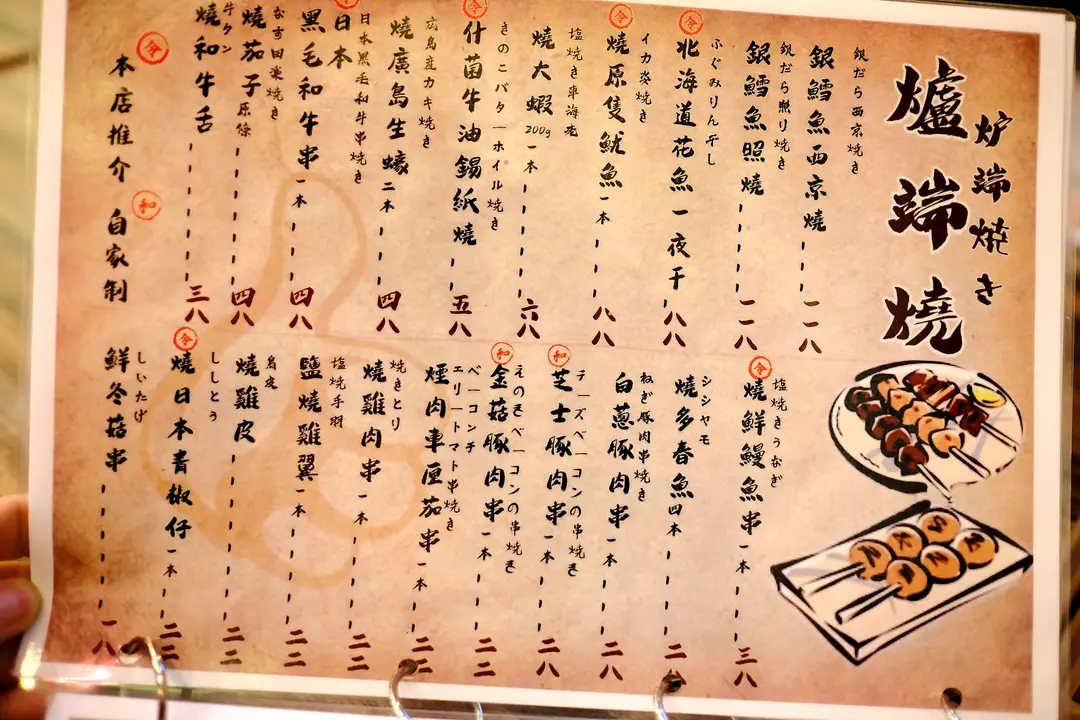 爐端燒
炉端焼き
銀だら西京焼き
銀鱈魚西京燒 一一八
銀だら照り焼き
銀鱈魚照燒 一一八
ふぐみりん干し
北海道花魚一夜干 八八
イカ姿焼き
燒原隻魷魚一本 八八
塩焼き車海老
燒大蝦200g一本 六八
きのこバターホイル焼き
什菌牛油錫紙燒 五八
広島産カキ焼き
燒廣島生蠔二本 四八
日本黒毛和牛串焼き
日本
黑毛和牛串一本 四八
なす田楽焼き
燒茄子原條 四八
牛タン
燒和牛舌 三八
令 本店推介 和 自家制
塩焼きうなぎ
令 燒鮮鰻魚串一本 三八
シシャモ
燒多春魚四本
ねぎ豚肉串焼き
白蔥豚肉串一本 二八
チーズベーコンの串焼き
和 芝士豚肉串一本 二八
えのきベーコンの串焼き
和 金菇豚肉串一本 二二
ベーコンチ
エリートマト串焼き
煙肉車厘茄串一本 二二
焼きとり
燒雞肉串一本 二二
塩焼手羽
鹽燒雞翼一本 二二
鳥皮
燒雞皮 二二
ししとう
令 燒日本青椒仔一本 二二
しいたけ
鮮冬菇串 一八